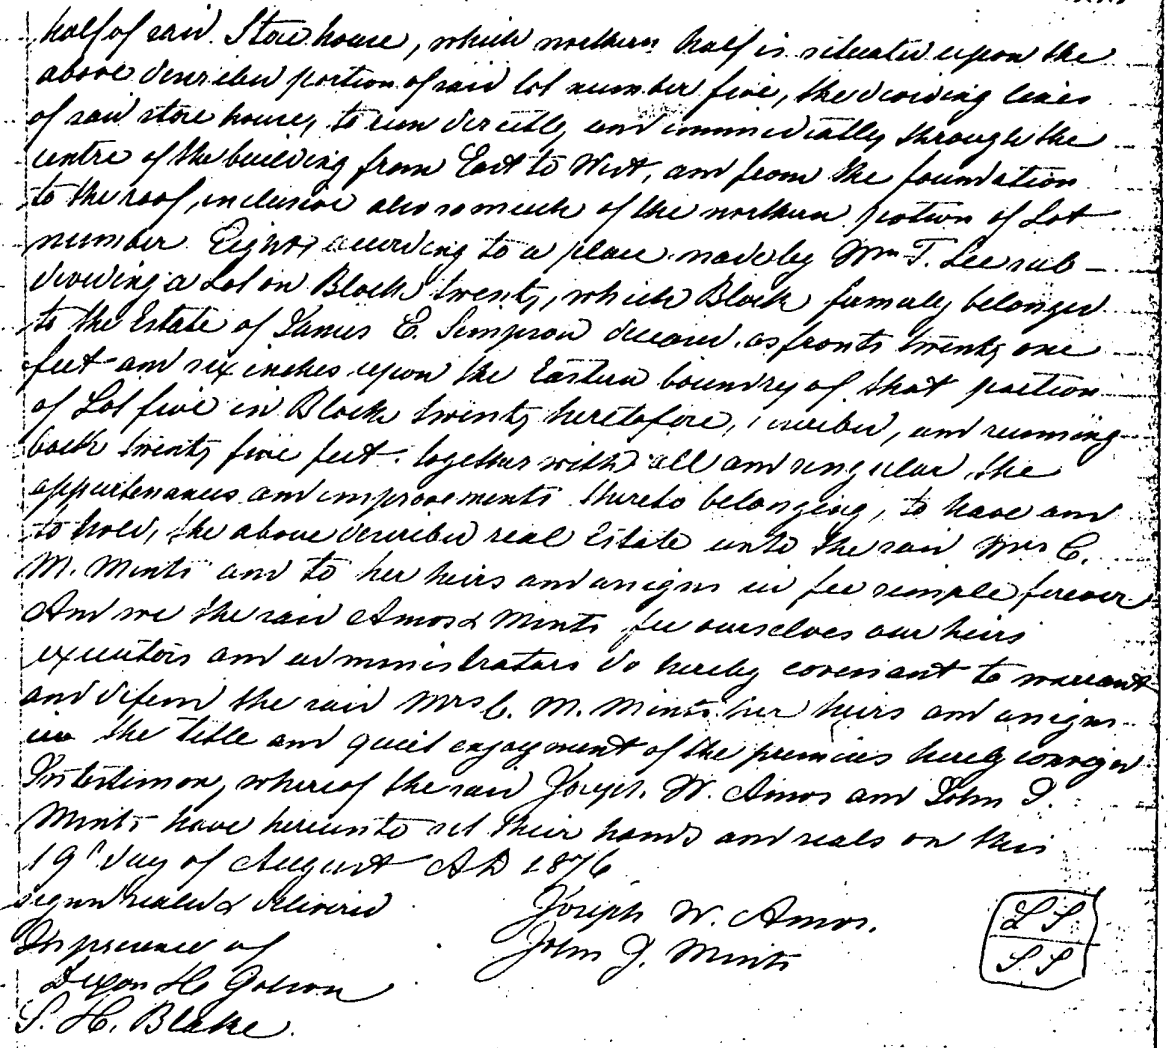 half of said Store house, which northern half is situated upon the
above described portion of said lot number five, the dividing lines
of said store house, to run directly and immediately through the
centre of the building from East to West, and from the foundation
to the roof, inclusive also so much of the northern portion of Lot
number Eight according to a place made by Wm T. Lee sub-
dividing a Lot on Block twenty, which Block formerly belonged
to the Estate of James C. Simpson deceased, as fronts twenty one
feet and six inches upon the Eastern boundry of that portion
of Lot five in Block twenty heretofore, described, and running
back twenty five feet. together with all and singular the
appurtenances and improvements thereto belonging, to have and
to hold, the above described real Estate unto the said Mrs C.
M. Mints and to her heirs and assigns in fee simple forever
And we the said Amos & Mints for ourselves our heirs
executors and administrators do hereby covenant to warrant
and defend the said Mrs C. M. Mints her heirs and assigns
in the title and quiet enjoyment of the premises hereby conveyed
In testimony whereof the said Joseph W. Amos and John J.
Mints have hereunto set their hands and seals on this
19th day of August AD 1876
signed sealed & delivered Joseph W. Amos. LS
In presence of John J. Mints SS
Dixon H Golson
S. H. Blake.